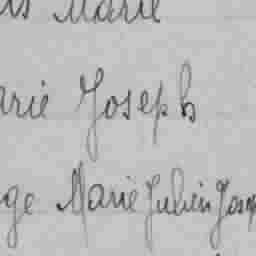 us Marie
arie Joseph
ge Marie Julien Josep